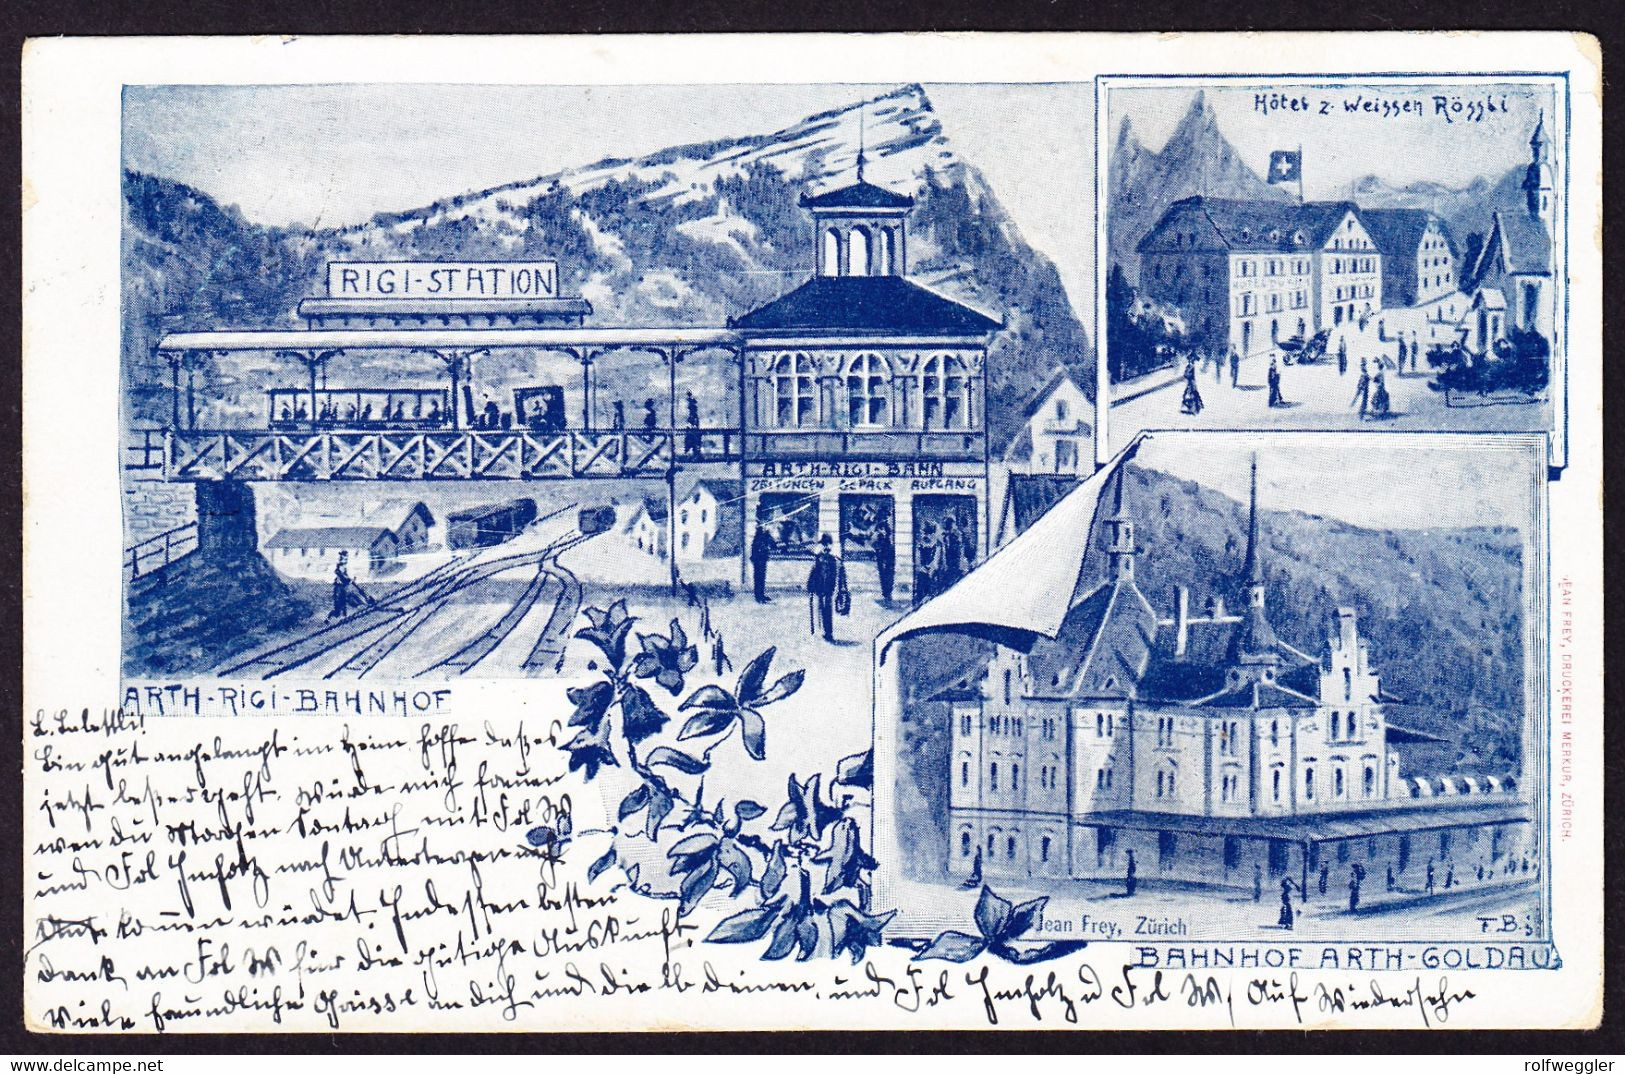 Hôtel z. Weissen Rössli
RIGI-STATION
ARTH-RIGI-BAHN
ZEITUNGEN GEPÄCK AUFGANG
ARTH-RIGI-BAHNHOF
JEAN FREY, DRUCKEREI MERKUR, ZÜRICH.
Jean Frey, Zürich
T.B.
BAHNHOF ARTH-GOLDAU
L. Babettli!
Bin gut angelangt im Heim. Hoffe dass es
jetzt besser geht. Würde mich freuen
wen du Morgen Sontag mit Frl W
und Frl Imholz nach Unterterzen
komen würdet. Indessen besten
dank an Frl W für die gütige Auskunft.
Viele freundliche an dich und die lb deinen, und Frl Imholz u Frl W, Auf Wiedersehn
delcampe.net
rolfweggler